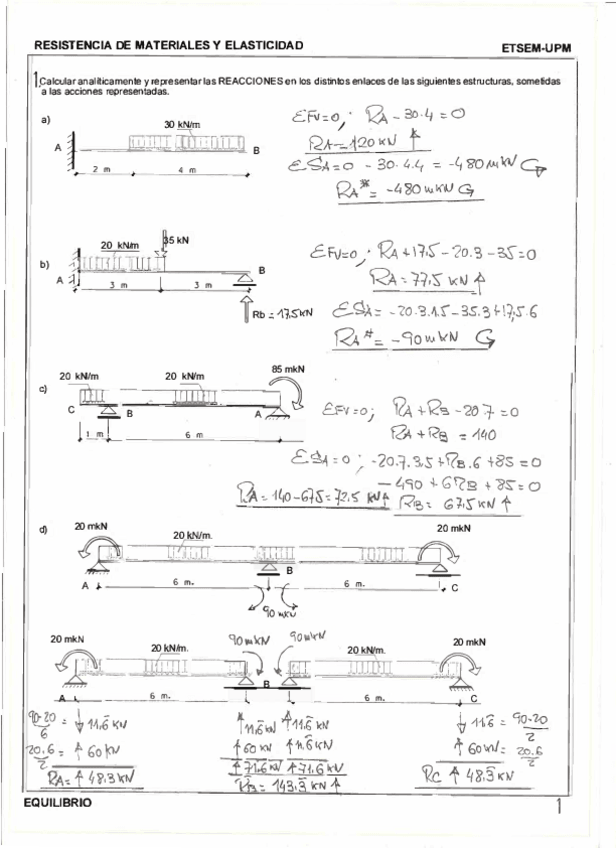 RESISTENCIA DE MATERIALES Y ELASTICIDAD
ETSEM-UPM
1. Calcular analíticamente y representar las REACCIONES en los distintos enlaces de las siguientes estructuras, sometidas
a las acciones representadas.
a)
30 kN/m
A
B
2 m
4 m
ΣFv=0; RA - 30·4 = 0
RA = 120 kN ↑
ΣSA=0 - 30·4·4 = -480 mkN
RA* = -480 mkN
b)
20 kN/m
35 kN
A
B
3 m
3 m
Rb = 17,5 kN
ΣFv=0; RA + 17,5 - 20·3 - 35 = 0
RA = 77,5 kN ↑
ΣSA = -20·3·1.5 - 35·3 + 17,5·6
RA* = -90 mkN
c)
20 kN/m
20 kN/m
85 mkN
C
B
A
1 m
6 m
ΣFv=0; RA + RB - 20·7 = 0
RA + RB = 140
ΣSA=0; -20·7·3,5 + RB·6 + 85 = 0
-490 + 6RB + 85 = 0
RA = 140 - 67,5 = 72,5 kN ↑
RB = 67,5 kN ↑
d)
20 mkN
20 kN/m.
20 mkN
A
B
C
6 m.
6 m.
90 mkN
20 mkN
20 kN/m.
90 mkN
90 mkN
20 kN/m.
20 mkN
A
B
C
6 m.
6 m.
90-20/6 = ↓ 11.6 kN
↑ 11,6 kN ↑ 11,6 kN
↓ 11.6 = 90-20/2
20.6/2 = ↑ 60 kN
↑ 60 kN ↑ 11.6 kN
↑ 60 kN = 20.6/2
↑ 71.6 kN ↑ 71.6 kN
RA = ↑ 48.3 kN
RB = 143.3 kN ↑
RC ↑ 48.3 kN
EQUILIBRIO
1